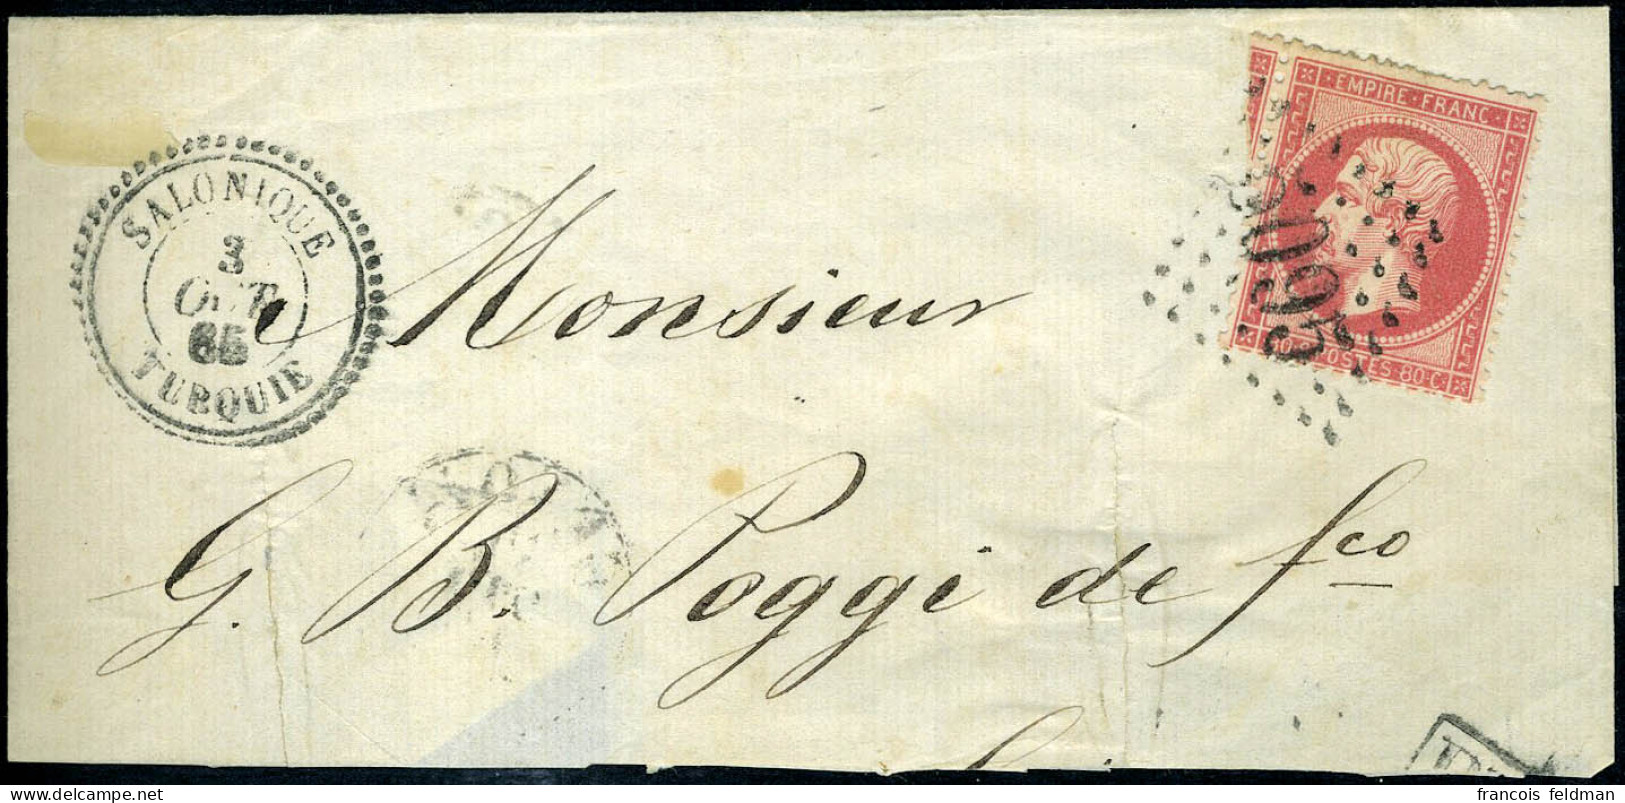 EMPIRE · FRANC ·
SALONIQUE
3
OCT
65
TURQUIE
POSTES 80·C·
Monsieur
G. B. Poggi de fco
delcampe.net
francois feldman